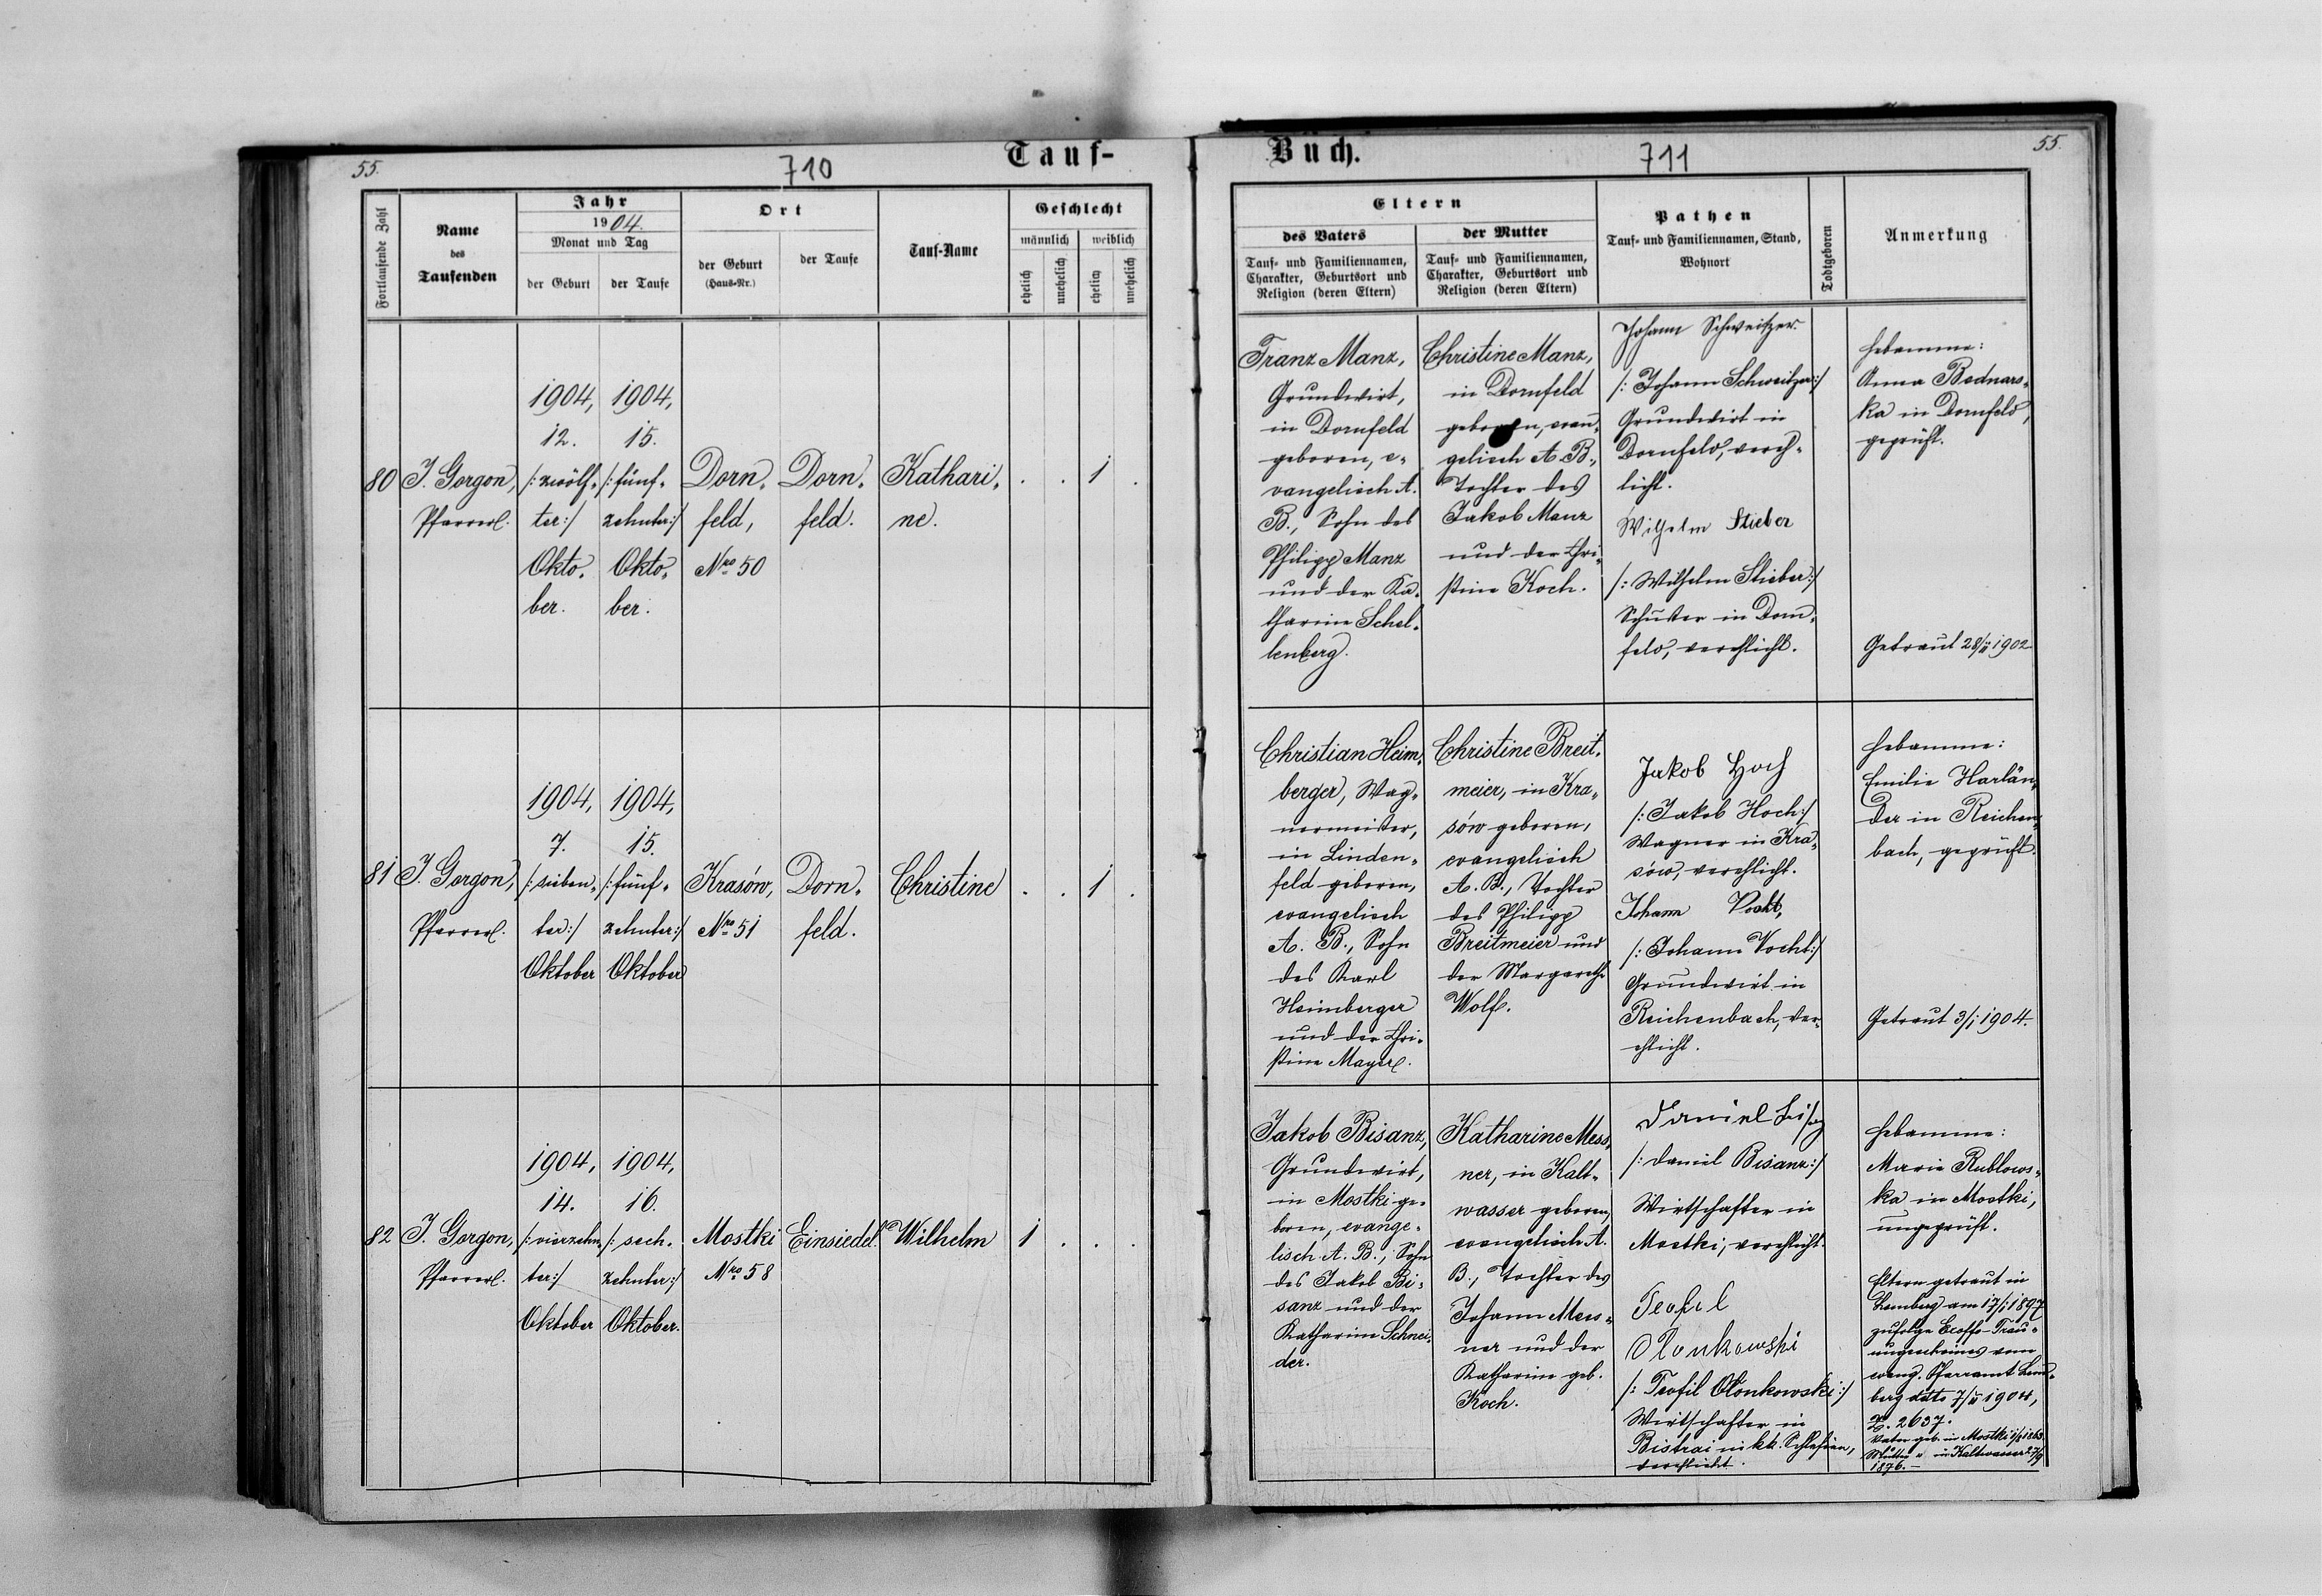 55.
710
Tauf-
Fortlaufende Zahl
Name
des
Taufenden
Jahr
1904.
Monat und Tag
der Geburt
der Taufe
Ort
der Geburt
(Haus-Nr.)
der Taufe
Tauf-Name
Geschlecht
männlich
weiblich
ehelich
unehelich
ehelich
unehelich
80
J. Gorgon,
Pfarrer.
1904,
12.
/: zwölf-
ter:/
Okto-
ber.
1904,
15.
/: fünf-
zehnter:/
Okto-
ber.
Dorn-
feld,
Nro 50
Dorn-
feld.
Kathari-
ne.
. . 1 .
81
J. Gorgon,
Pfarrer.
1904,
7.
/: sieben-
ter:/
Oktober
1904,
15.
/: fünf-
zehnter:/
Oktober
Krasów,
Nro 51
Dorn-
feld.
Christine
. . 1 .
82
J. Gorgon,
Pfarrer.
1904,
14.
/: vierzehn-
ter:/
Oktober
1904,
16.
/: sech-
zehnter:/
Oktober.
Mostki
Nro 58
Einsiedel.
Wilhelm
1 . . .
Buch.
711
55.
Eltern
des Vaters
Tauf- und Familiennamen,
Charakter, Geburtsort und
Religion (deren Eltern)
der Mutter
Tauf- und Familiennamen,
Charakter, Geburtsort und
Religion (deren Eltern)
Pathen
Tauf- und Familiennamen, Stand,
Wohnort
Todtgeboren
Anmerkung
Franz Manz,
Grundwirt,
in Dornfeld
geboren, e-
vangelisch A.
B., Sohn des
Philipp Manz
und der Ka-
tharine Schel-
lenberg.
Christine Manz,
in Dornfeld
geboren, evan-
gelisch A. B.,
Tochter des
Jakob Manz
und der Chri-
stine Koch.
Johann Schweitzer
/: Johann Schweitzer:/
Grundwirt in
Dornfeld, vereh-
licht.
Wilhelm Stieber
/: Wilhelm Stieber:/
Schuster in Dorn-
feld, verehlicht.
Hebamme:
Anna Bednars-
ka in Dornfeld,
geprüft.
Getraut 28/II 1902
Christian Heim-
berger, Wag-
nermeister,
in Linden-
feld geboren,
evangelisch
A. B., Sohn
des Karl
Heimberger
und der Chri-
stine Mayer.
Christine Breit-
meier, in Kra-
sów geboren,
evangelisch
A. B., Tochter
des Philipp
Breitmeier und
der Margarethe
Wolf.
Jakob Hoch
/: Jakob Hoch:/
Wagner in Kra-
sów, verehlicht.
Johann Vocht,
/: Johann Vocht:/
Grundwirt in
Reichenbach, ver-
ehlicht.
Hebamme:
Emilie Harlän-
der in Reichen-
bach, geprüft.
Getraut 3/I 1904.
Jakob Bisanz,
Grundwirt,
in Mostki ge-
boren, evange-
lisch A. B., Sohn
des Jakob Bi-
sanz und der
Katharine Schnei-
der.
Katharine Mess-
ner, in Kalt-
wasser geboren,
evangelisch A.
B., Tochter des
Johann Mess-
ner und der
Katharine geb.
Koch.
Daniel
/: Daniel Bisanz:/
Wirtschafter in
Mostki, verehlicht.
Teofil
Olonkowski
/: Teofil Olonkowski:/
Wirtschafter in
Bistrai in kk. Schlesien,
verehlicht.
Hebamme:
Marie Rublows-
ka in Mostki,
ungeprüft.
Eltern getraut in
Lemberg am 17/I 1897
zufolge Trau-
ungsscheines vom
evang. Pfarramt Lem-
berg ddto 7/II 1904,
Z. 2637.
Vater geb. in Mostki
Mutter " in Kaltwasser 27/9
1876.